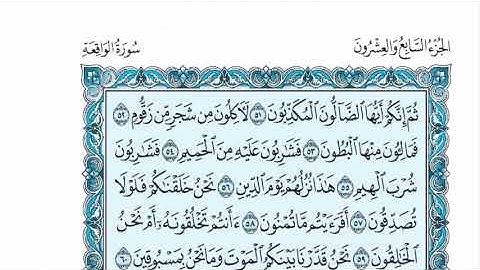 الجزء السابع والعشرون
سورة الواقعة
ثُمَّ إِنَّكُمْ أَيُّهَا الضَّآلُّونَ الْمُكَذِّبُونَ ٥١ لَأَكِلُونَ مِن شَجَرٍ مِّن زَقُّومٍ ٥٢
فَمَالِـُٔونَ مِنْهَا الْبُطُونَ ٥٣ فَشَٰرِبُونَ عَلَيْهِ مِنَ الْحَمِيمِ ٥٤ فَشَٰرِبُونَ
شُرْبَ الْهِيمِ ٥٥ هَٰذَا نُزُلُهُمْ يَوْمَ الدِّينِ ٥٦ نَحْنُ خَلَقْنَٰكُمْ فَلَوْلَا
تُصَدِّقُونَ ٥٧ أَفَرَءَيْتُم مَّا تُمْنُونَ ٥٨ ءَأَنتُمْ تَخْلُقُونَهُۥٓ أَمْ نَحْنُ
الْخَٰلِقُونَ ٥٩ نَحْنُ قَدَّرْنَا بَيْنَكُمُ الْمَوْتَ وَمَا نَحْنُ بِمَسْبُوقِينَ ٦٠